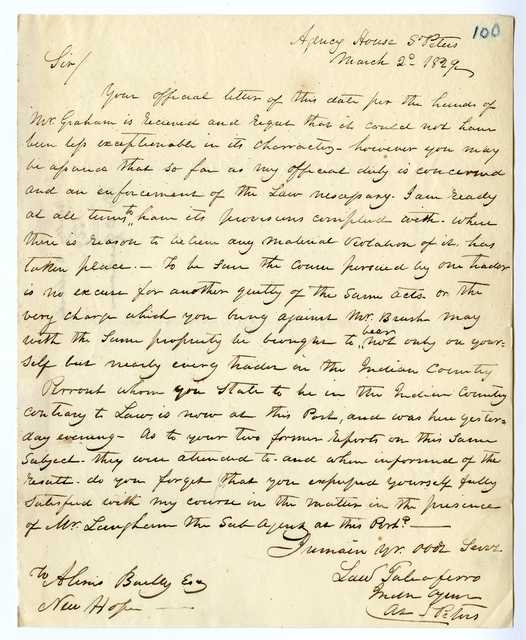 100
Agency House St Peters
March 2d 1829
Sir/
Your official letter of this date per the hands of
Mr. Graham is recieved and regret that it could not have
been less exceptionable in its character - however you may
be assured that so far as my official duty is concerned
and an enforcement of the Law necessary. I am ready
at all times to have its provisions complied with. where
there is reason to believe any material violation of it has
taken place. - To be sure the course persued by one trader
is no excuse for another guilty of the same acts. or the
very charge which you bring against Mr. Brush may
with the same propriety be brought to bear not only on your-
self but nearly every trader in the Indian Country
Perrout whom you State to be in the Indian Country
contrary to Law, is now at this Post, and was here yester-
day evening - As to your two former reports on this Same
Subject. they were attended to. and when informed of the
result. do you forget that you expressed yourself fully
satisfied with my course in the matter in the presence
of Mr. Langham the Sub Agent at this Post. -
I remain yr. obdt Servt
Law Taliaferro
Indn Agent
At St Peters
To Alexis Bailly Esq
New Hope -